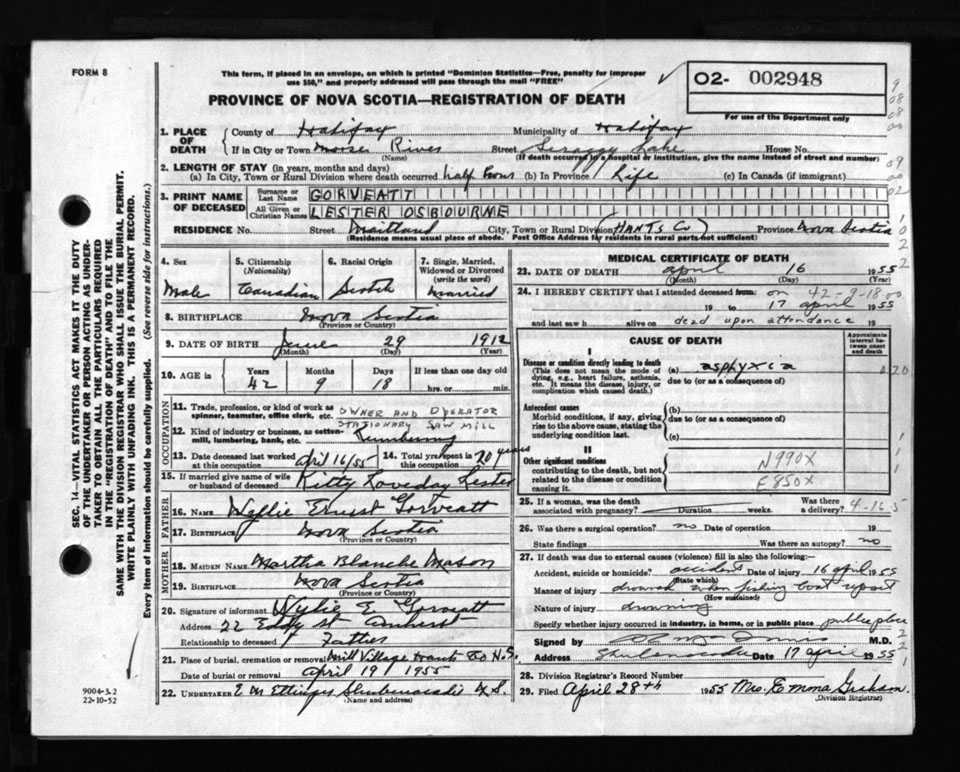 FORM 8
This form, if placed in an envelope, on which is printed "Dominion Statistics—Free, penalty for improper
use $50," and properly addressed will pass through the mail "FREE"
O2- 002948
For use of the Department only
PROVINCE OF NOVA SCOTIA—REGISTRATION OF DEATH
1. PLACE OF DEATH
County of Halifax Municipality of Halifax
If in City or Town Moose River Street Scraggy Lake House No.
(Name) (If death occurred in a hospital or institution, give the name instead of street and number)
2. LENGTH OF STAY (in years, months and days)
(a) In City, Town or Rural Division where death occurred half hour (b) In Province Life (c) In Canada (if immigrant)
3. PRINT NAME OF DECEASED
Surname or Last Name GORVEATT
All Given or Christian Names LESTER OSBOURNE
RESIDENCE No. Street Maitland City, Town or Rural Division (HANTS Co) Province Nova Scotia
(Residence means usual place of abode. Post Office Address for residents in rural parts not sufficient)
4. Sex Male
5. Citizenship (Nationality) Canadian
6. Racial Origin Scotch
7. Single, Married, Widowed or Divorced (write the word) Married
8. BIRTHPLACE Nova Scotia
(Province or Country)
9. DATE OF BIRTH June 29 1912
(Month) (Day) (Year)
10. AGE in Years 42 Months 9 Days 18 If less than one day old hrs. or min.
OCCUPATION
11. Trade, profession, or kind of work as spinner, teamster, office clerk, etc. OWNER AND OPERATOR
STATIONARY SAW MILL
12. Kind of industry or business, as cotton-mill, lumbering, bank, etc. Lumbering
13. Date deceased last worked at this occupation April 16/55 14. Total yrs. spent in this occupation 20 years
15. If married give name of wife or husband of deceased Kitty Loveday Lester
FATHER
16. Name Wyllie Ernest Gorveatt
17. Birthplace Nova Scotia
(Province or Country)
MOTHER
18. MAIDEN NAME Martha Blanche Mason
19. BIRTHPLACE Nova Scotia
(Province or Country)
20. Signature of informant Wylie E. Gorveatt
Address 22 Eddy St Amherst
Relationship to deceased Father
21. Place of burial, cremation or removal Mill Village Hants Co N.S.
Date of burial or removal April 19 1955
22. UNDERTAKER E M Ettinger Shubenacadie N.S.
(Name and address)
MEDICAL CERTIFICATE OF DEATH
23. DATE OF DEATH April 16 1955
(Month) (Day) (Year)
24. I HEREBY CERTIFY that I attended deceased from: on 42-9-18
19 to 17 april 1955
and last saw h alive on dead upon attendance 19
CAUSE OF DEATH
Approximate interval between onset and death
I
Disease or condition directly leading to death (a) asphyxia
(This does not mean the mode of dying, e.g., heart failure, asthenia, etc. It means the disease, injury, or complication which caused death.)
due to (or as a consequence of)
Antecedent causes (b)
Morbid conditions, if any, giving rise to the above cause, stating the underlying condition last.
due to (or as a consequence of)
(c)
II
Other significant conditions
contributing to the death, but not related to the disease or condition causing it
N990X
E850X
25. If a woman, was the death associated with pregnancy? Duration weeks. Was there a delivery?
4-16-5
26. Was there a surgical operation? no Date of operation 19
State findings Was there an autopsy? no
27. If death was due to external causes (violence) fill in also the following:—
Accident, suicide or homicide? accident Date of injury 16 april 1955
(State which)
Manner of injury drowned when fishing boat upset
(How sustained)
Nature of injury drowning
Specify whether injury occurred in industry, in home, or in public place public place
Signed by M.D.
Address Shubenacadie Date 17 april 1955
28. Division Registrar's Record Number
29. Filed April 28th 1955 Mrs. Emma
(Division Registrar)
SEC. 14—VITAL STATISTICS ACT MAKES IT THE DUTY
OF THE UNDERTAKER OR PERSON ACTING AS UNDER-
TAKER TO OBTAIN ALL THE PARTICULARS REQUIRED
IN THE "REGISTRATION OF DEATH" AND TO FILE THE
SAME WITH THE DIVISION REGISTRAR WHO SHALL ISSUE THE BURIAL PERMIT.
WRITE PLAINLY WITH UNFADING INK. THIS IS A PERMANENT RECORD.
Every item of information should be carefully supplied. (See reverse side for instructions.)
9004-3.2
22-10-52